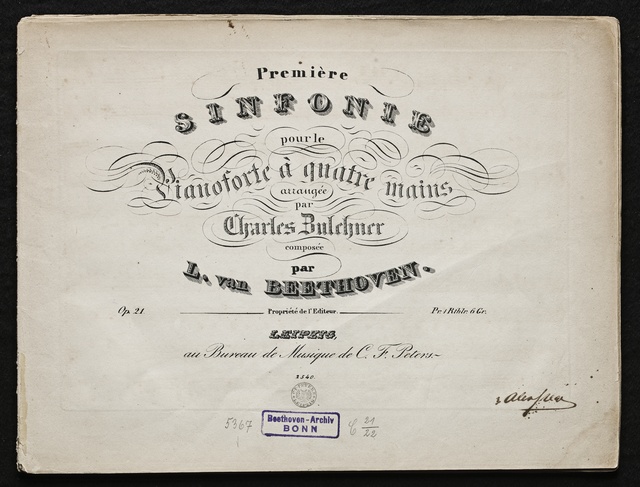 Première
SINFONIE
pour le
Pianoforte à quatre mains
arrangée
par
Charles Bulchner
composée
par
L. van BEETHOVEN.
Op. 21
Propriété de l'Editeur.
Pr. 1 Rthlr. 6 Gr.
LEIPZIG,
au Bureau de Musique de C. F. Peters.
2540
5367
Beethoven-Archiv
BONN
C 21/22